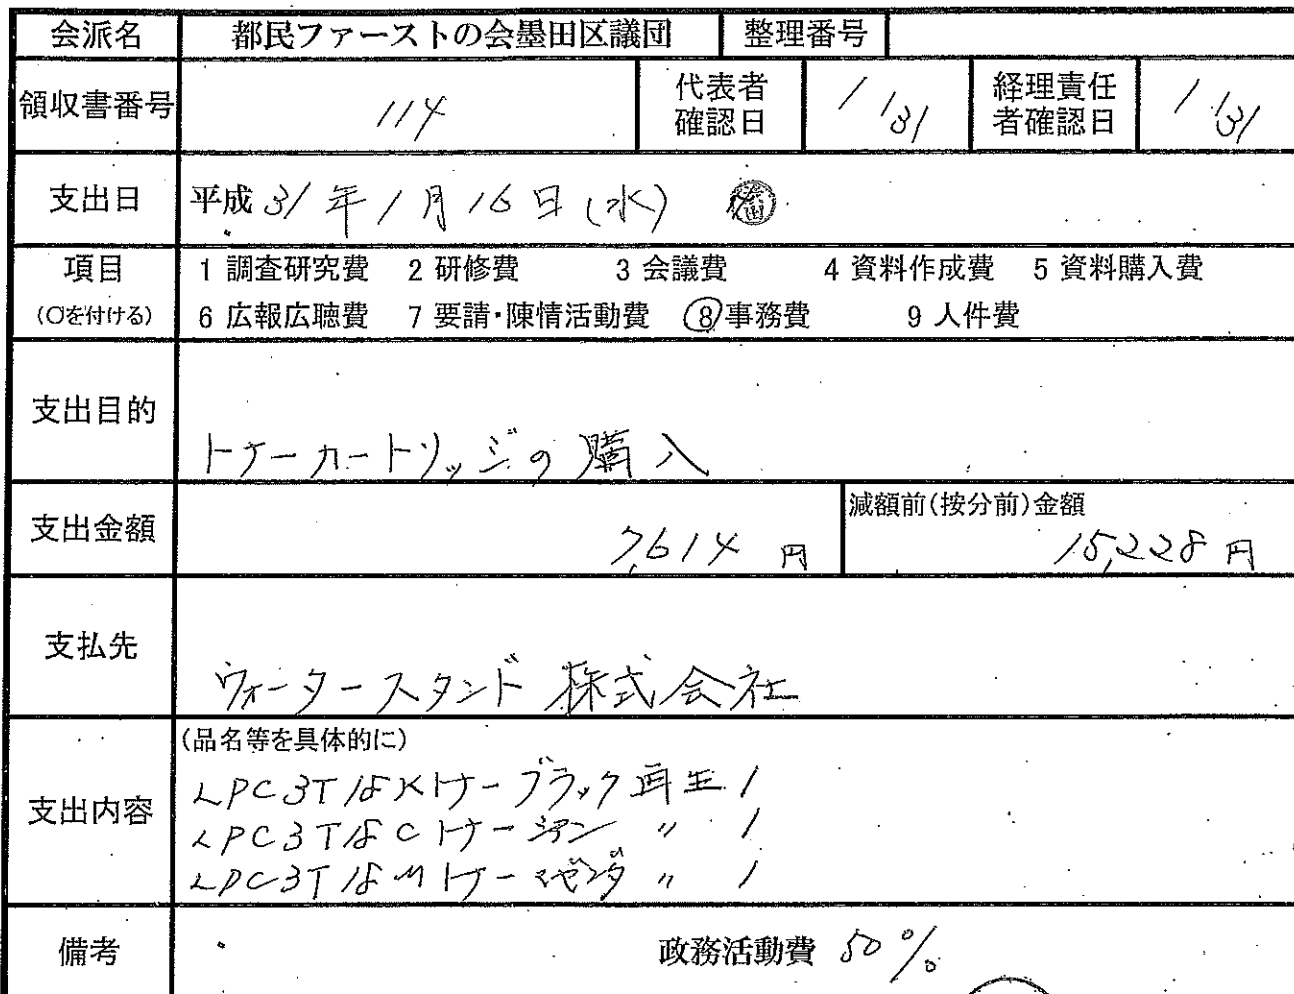 会派名 都民ファーストの会墨田区議団 整理番号
領収書番号 114 代表者確認日 1/31 経理責任者確認日 1/31
支出日 平成31年1月16日(水)
項目 1 調査研究費 2 研修費 3 会議費 4 資料作成費 5 資料購入費
(○を付ける) 6 広報広聴費 7 要請・陳情活動費 8 事務費 9 人件費
支出目的 トナーカートリッジの購入
減額前(按分前)金額
支出金額 7,614 円 15,228 円
支払先 ウォータースタンド株式会社
(品名等を具体的に)
LPC3T18Kトナーブラック再生 1
支出内容 LPC3T18Cトナーシアン 〃 1
LPC3T18Mトナーマゼンダ 〃 1
備考 政務活動費 50%